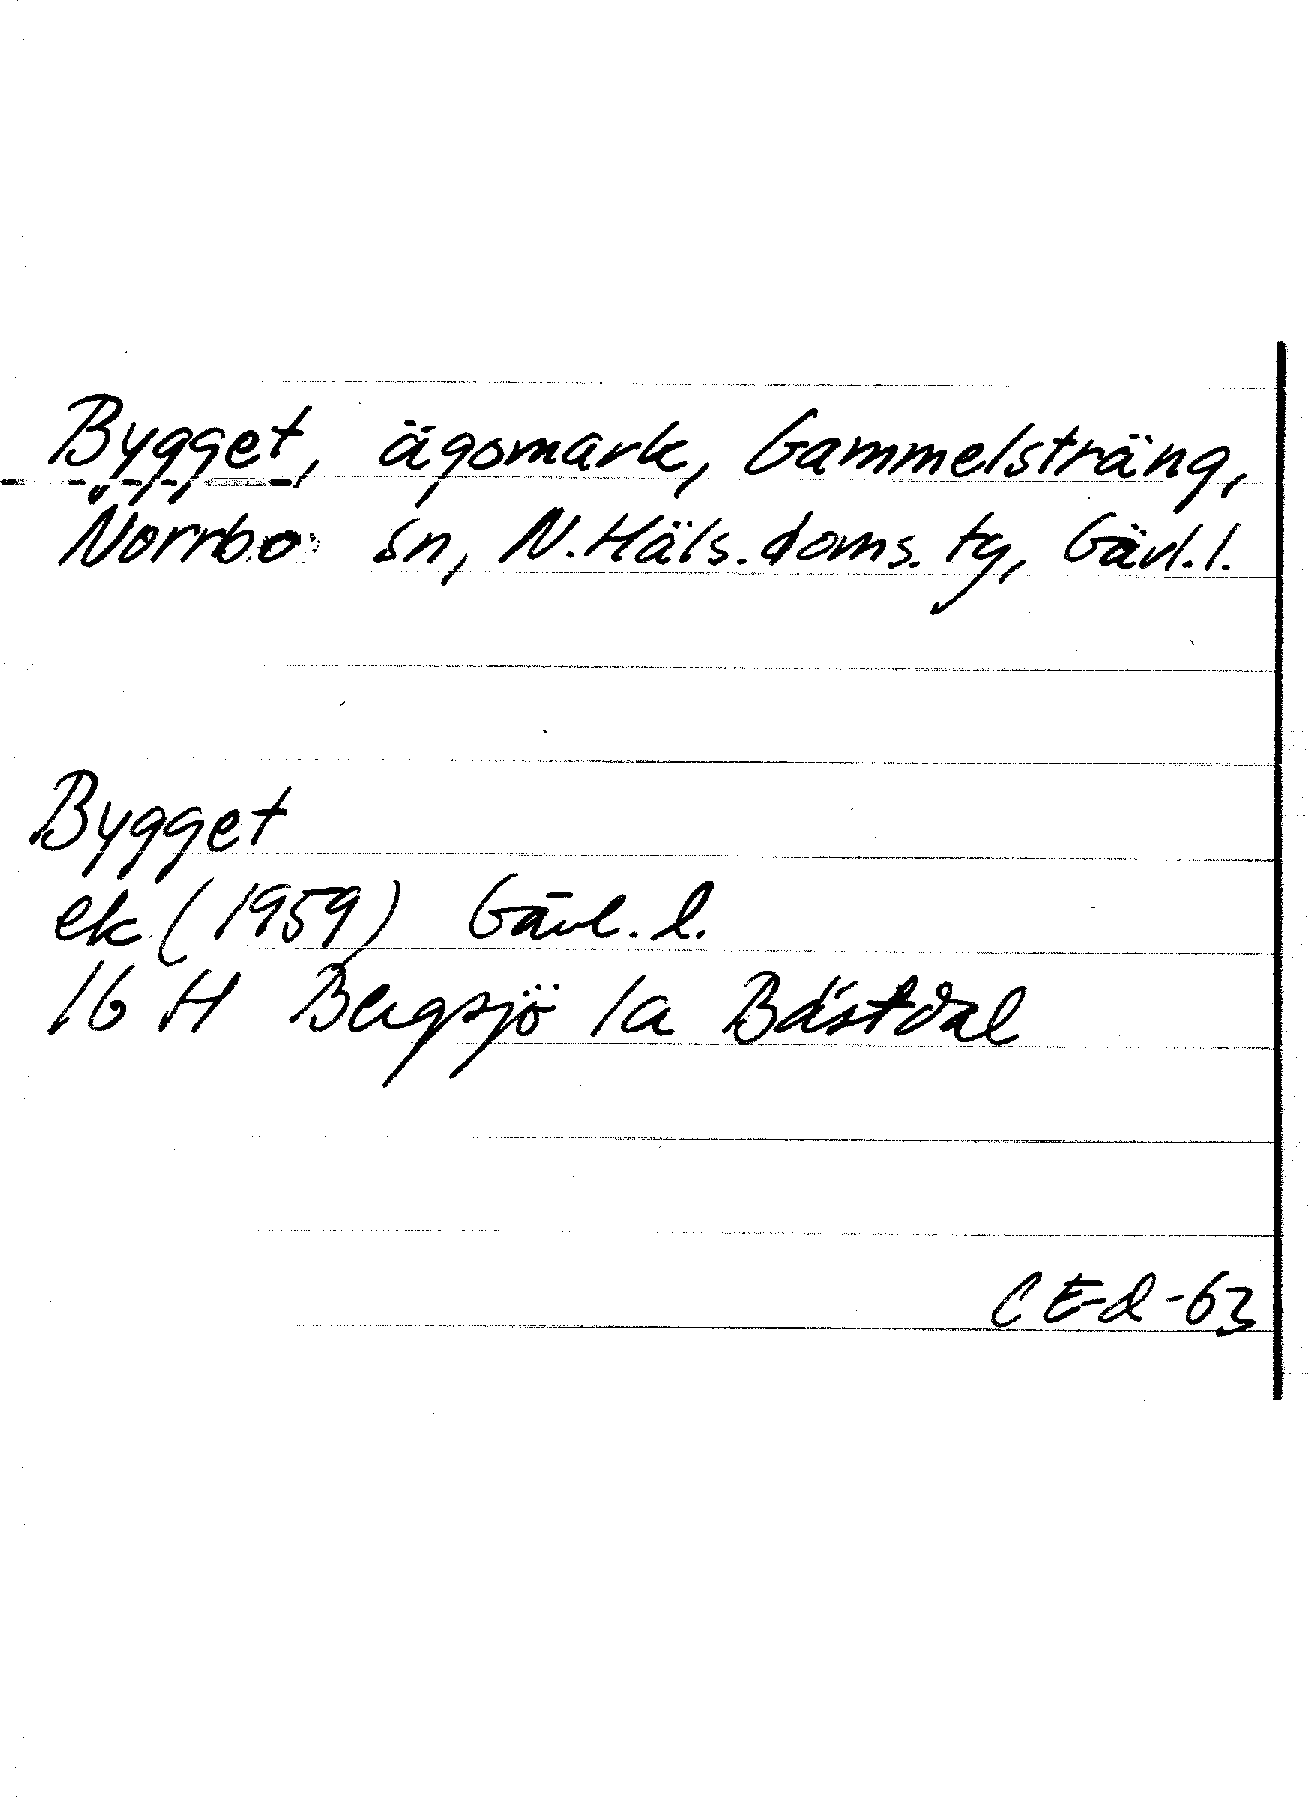 Bygget, ägomark, Gammelsträng,
Norrbo sn, N.Häls.doms.tg, Gävl.l.
Bygget
ek (1959) Gävl. l.
16 H Bergsjö 1a Bästdal
CE-d-63